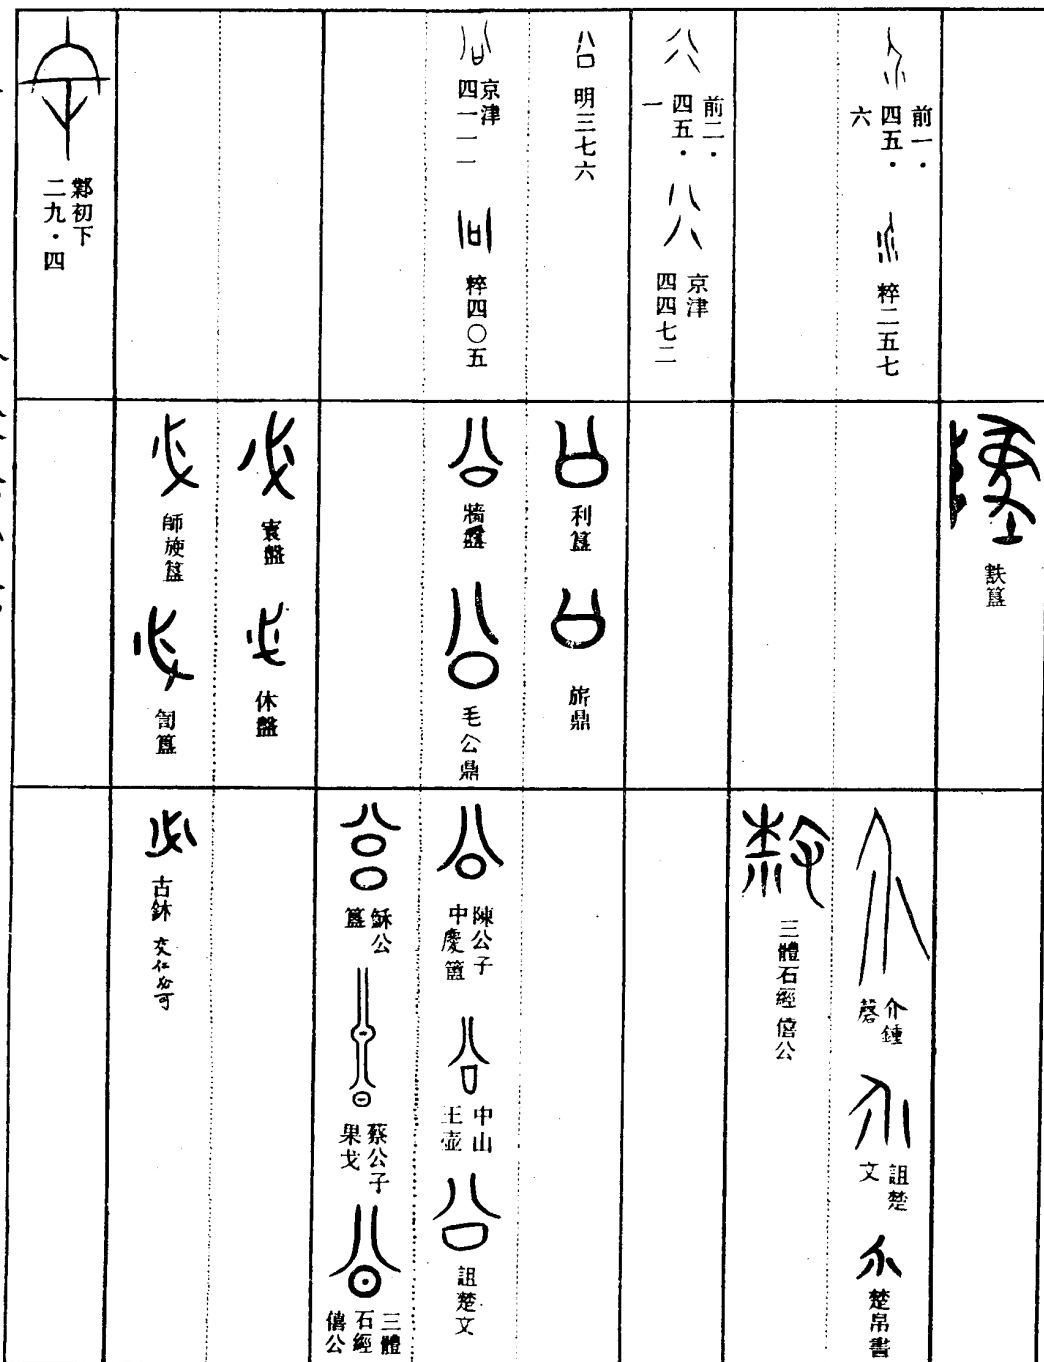 前一·
四五·
六
粹二五七
前二·
四五·
一
京津
四四七二
明三七六
京津
四一一一
粹四〇五
鄴初下
二九·四
㝬簋
利簋
旂鼎
牆盤
毛公鼎
㝨盤
休盤
師旋簋
訇簋
介鍾
詛楚
文
楚帛書
三體石經僖公
陳公子
中慶簠
中山
王壺
詛楚文
穌公
簋
蔡公子
果戈
三體
石經
僖公
古鉥